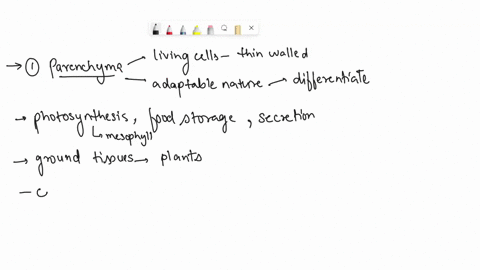 → ① Parenchyma living cells – thin walled
adaptable nature → differentiate
→ photosynthesis, food storage, secretion
↳ mesophyll
→ ground tissues → plants
– c